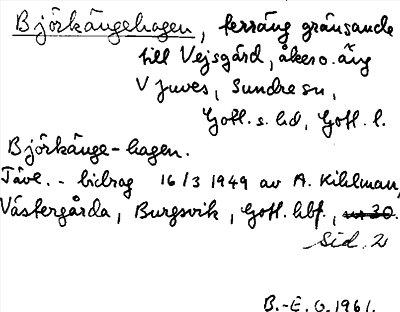 Björkängehagen, terräng gränsande
till Vejsgård, åker o. äng
V Juves, Sundre sn,
Gotl. s. hd, Gotl. l.
Björkänge-hagen.
Tävl.-bidrag 16/3 1949 av A. Kihlman,
Västergårda, Burgsvik, Gotl. hbf,
Sid. 2
B.-E. O. 1961.